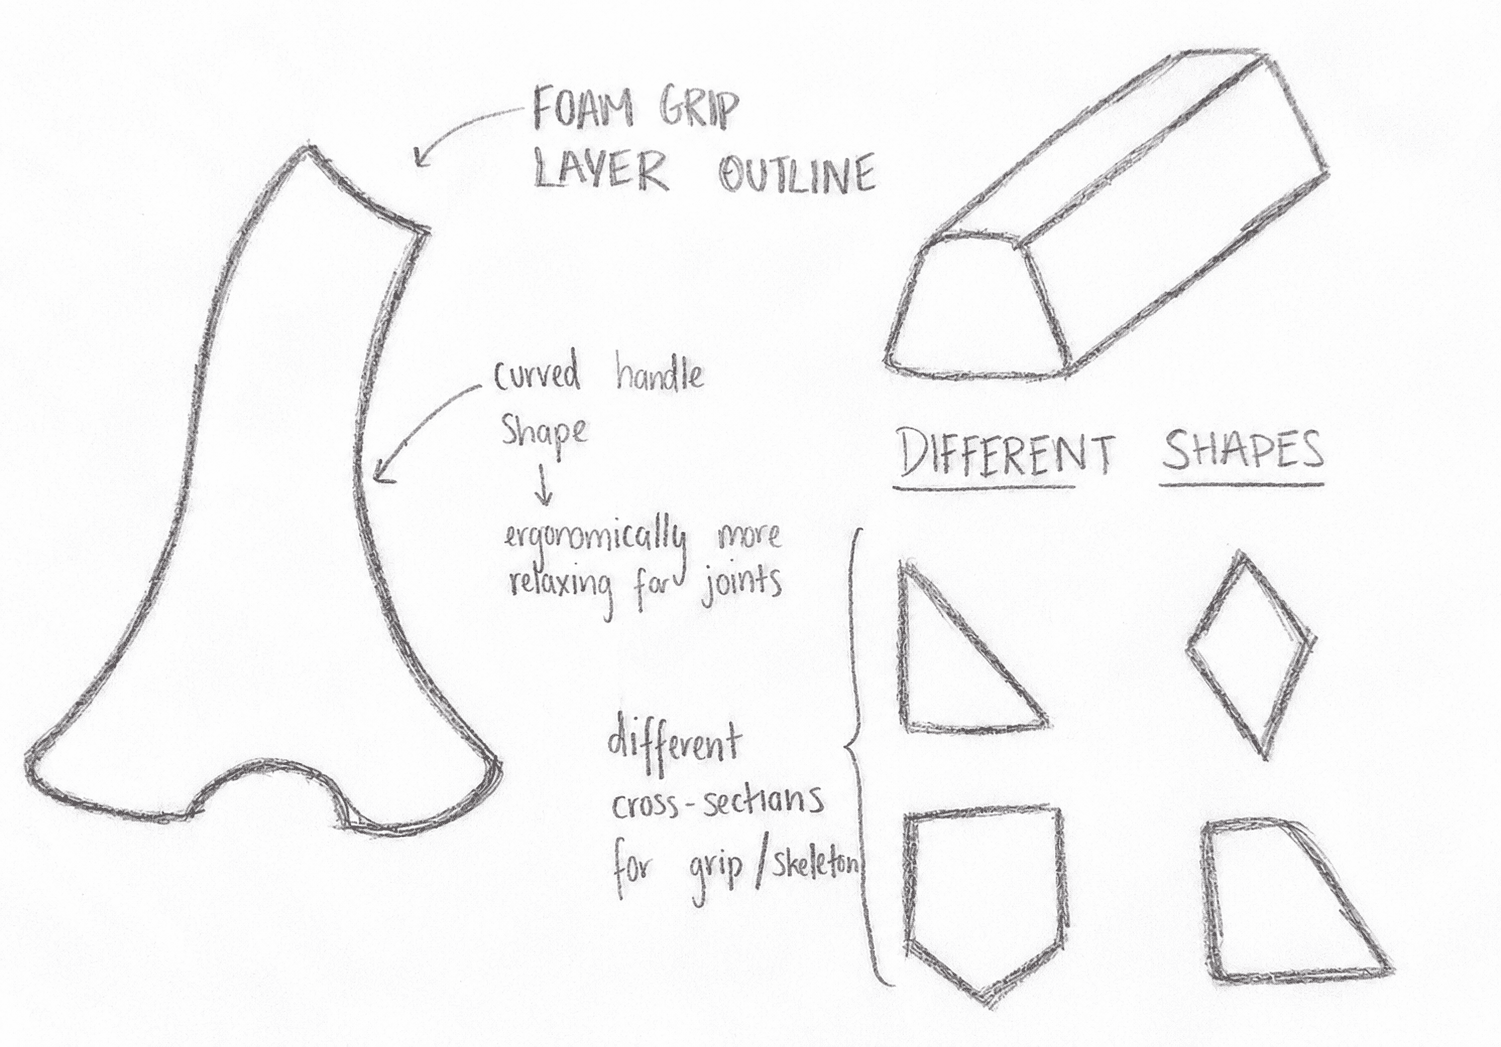 FOAM GRIP
LAYER OUTLINE
curved handle
shape
ergonomically more
relaxing for joints
DIFFERENT SHAPES
different
cross-sections
for grip/skeleton